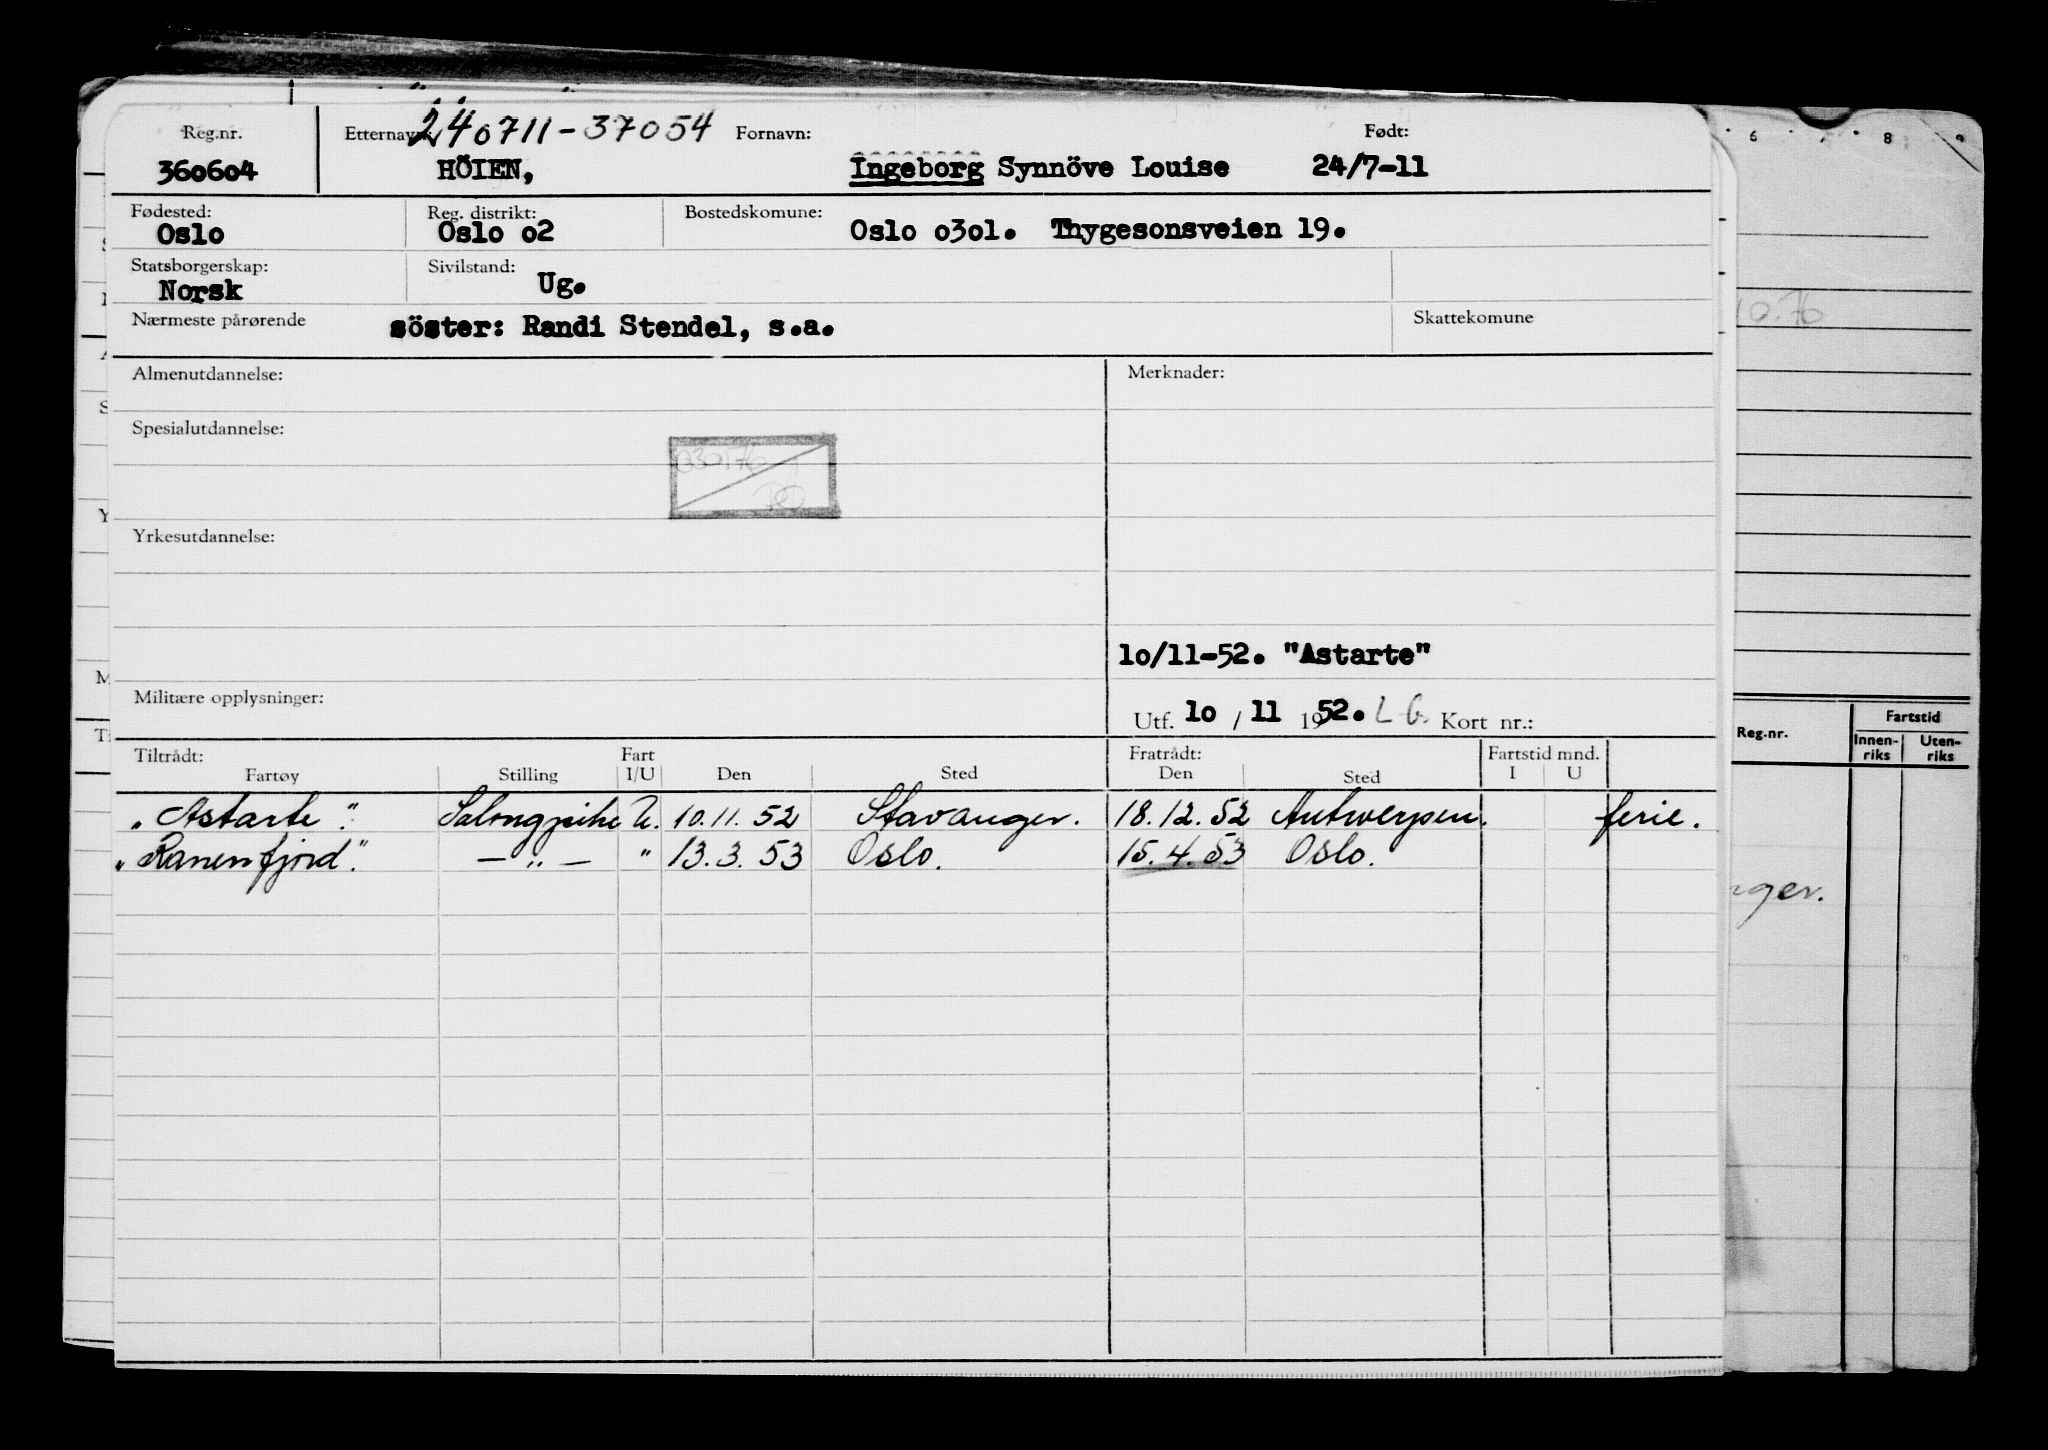 240711-37054
Reg.nr. Etternavn: Fornavn: Født:
360604 HÖIEN, Ingeborg Synnöve Louise 24/7-11
Fødested: Reg. distrikt: Bostedskomune:
Oslo Oslo o2 Oslo o3ol. Thygesonsveien 19.
Statsborgerskap: Sivilstand:
Norsk Ug.
Nærmeste pårørende söster: Randi Stendel, s.a. Skattekomune
Almenutdannelse: Merknader:
Spesialutdannelse:
Yrkesutdannelse:
lo/11-52. "Astarte"
Militære opplysninger:
Utf. lo / 11 1952. L G. Kort nr.:
Tiltrådt: Fart Fratrådt: Fartstid mnd.
Fartøy Stilling I/U Den Sted Den Sted I U
"Astarte". Salongpike U. 10.11.52 Stavanger. 18.12.52 Antwerpen. ferie.
"Ranenfjord". — " — " 13.3.53 Oslo. 15.4.53 Oslo.
6 8 9
10.76
Reg.nr. Fartstid
Innen- Uten-
riks riks